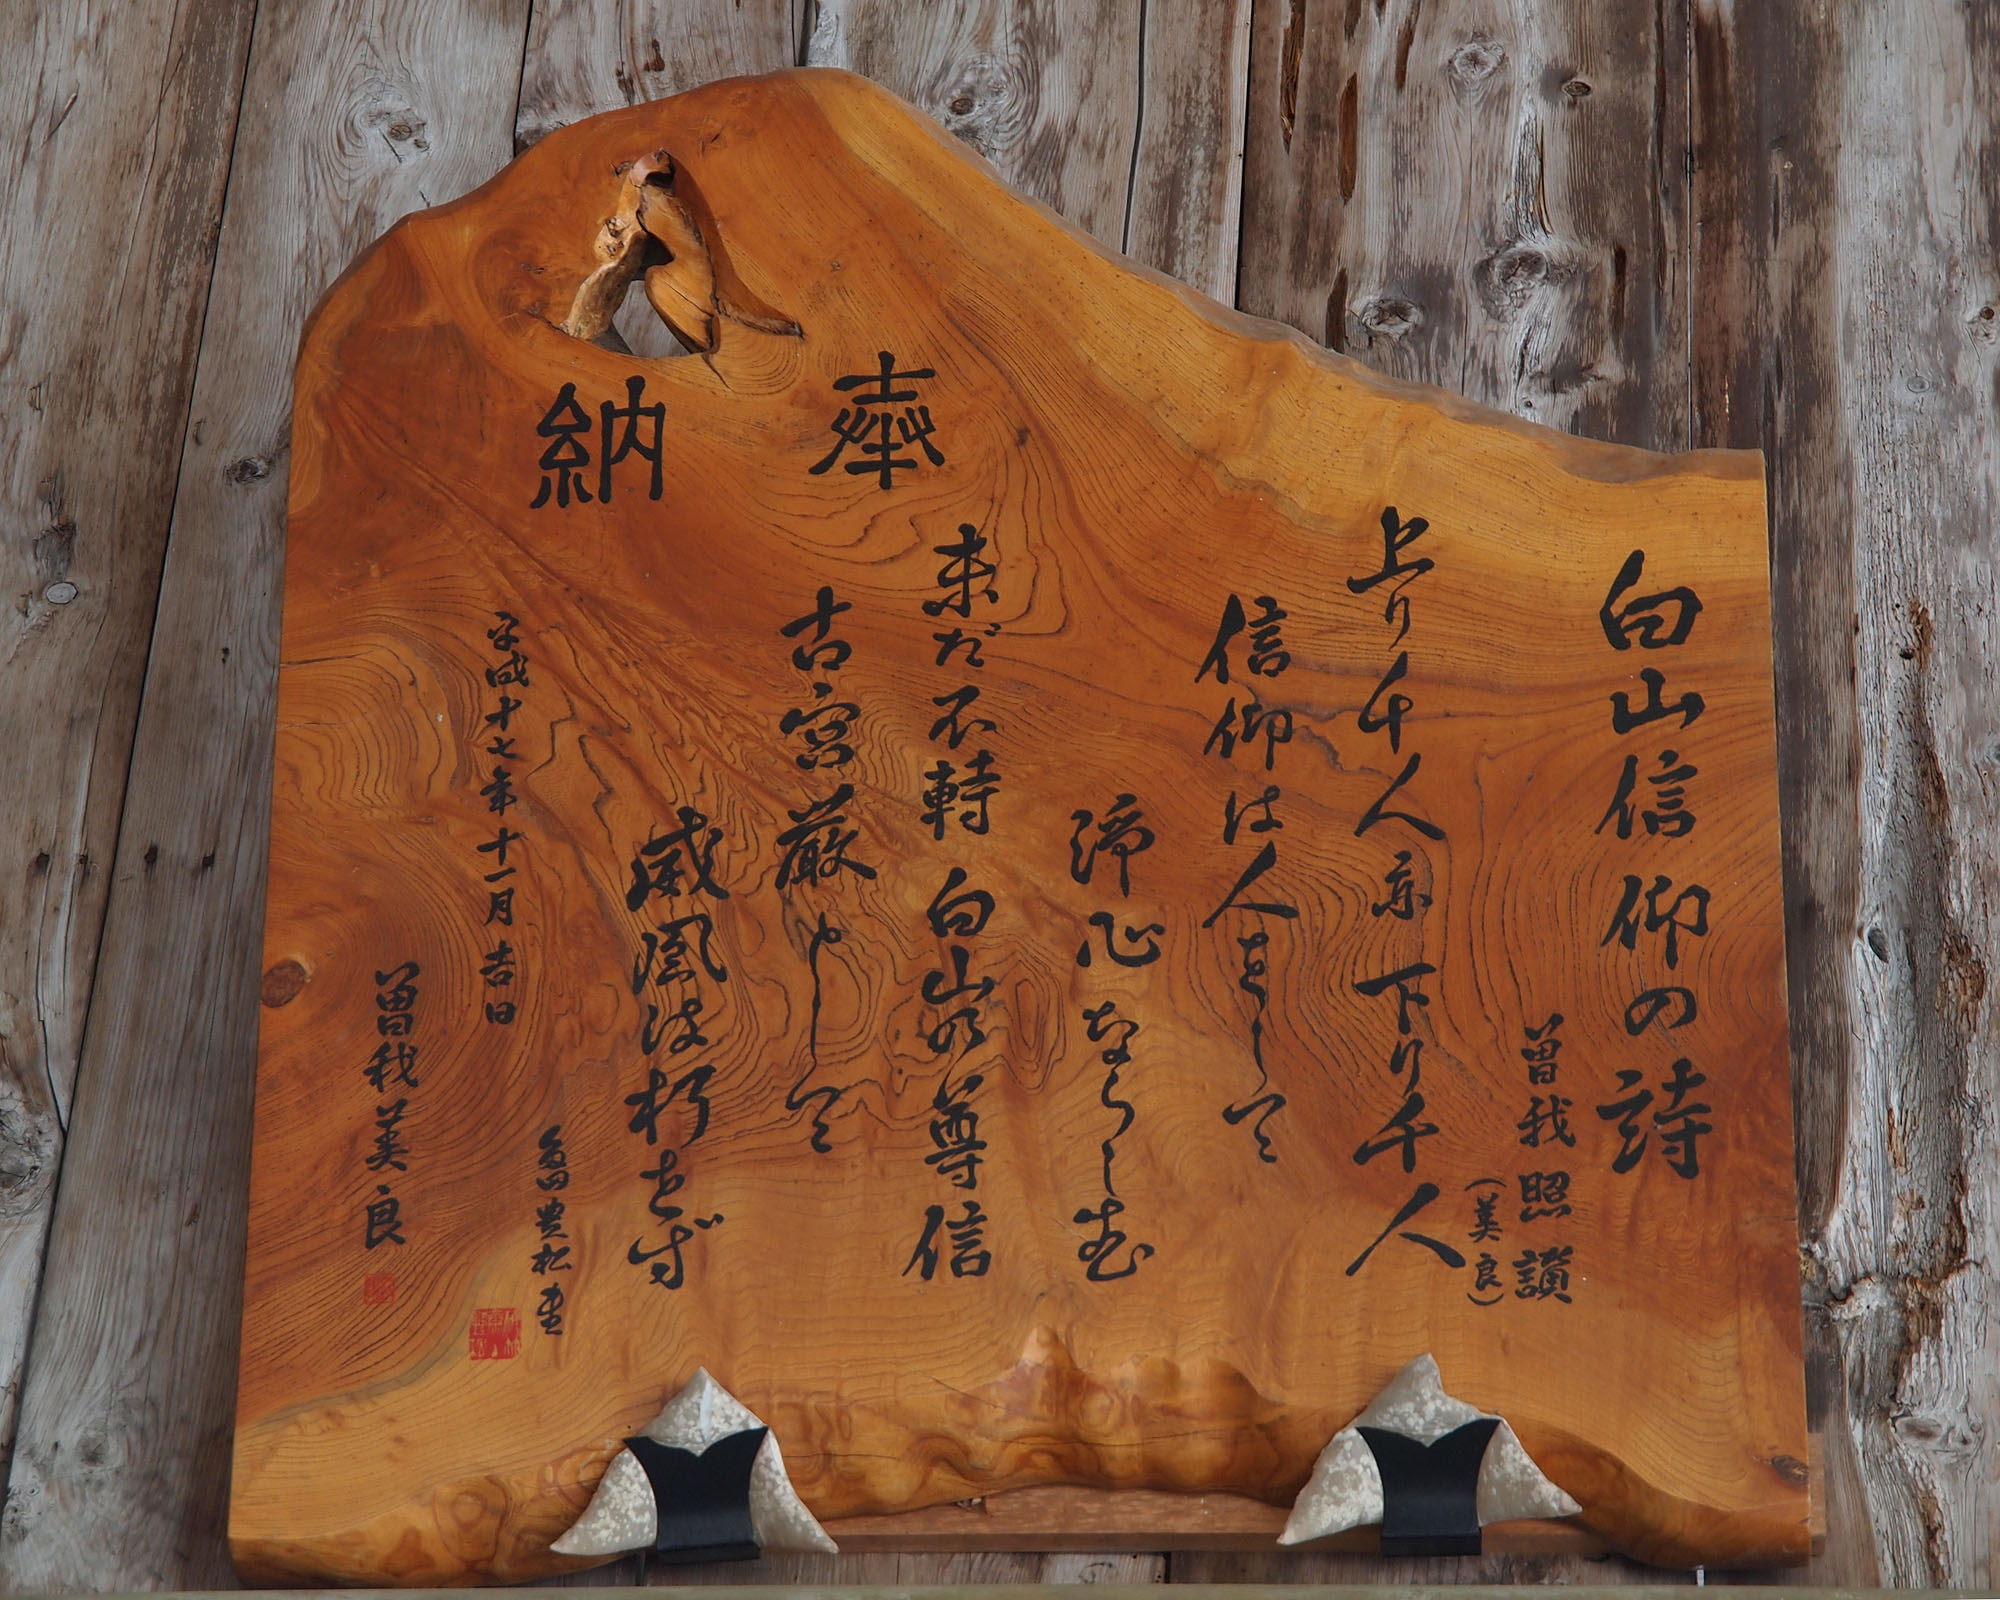 奉納
白山信仰の詩
曽我照讃
(美良)
上り千人亦下り千人
信仰は人をして
諦心ならしむ
未だ不転白山の尊信
古宮厳として
威風は朽をず
平成十七年十一月吉日
豊松書
曽我美良